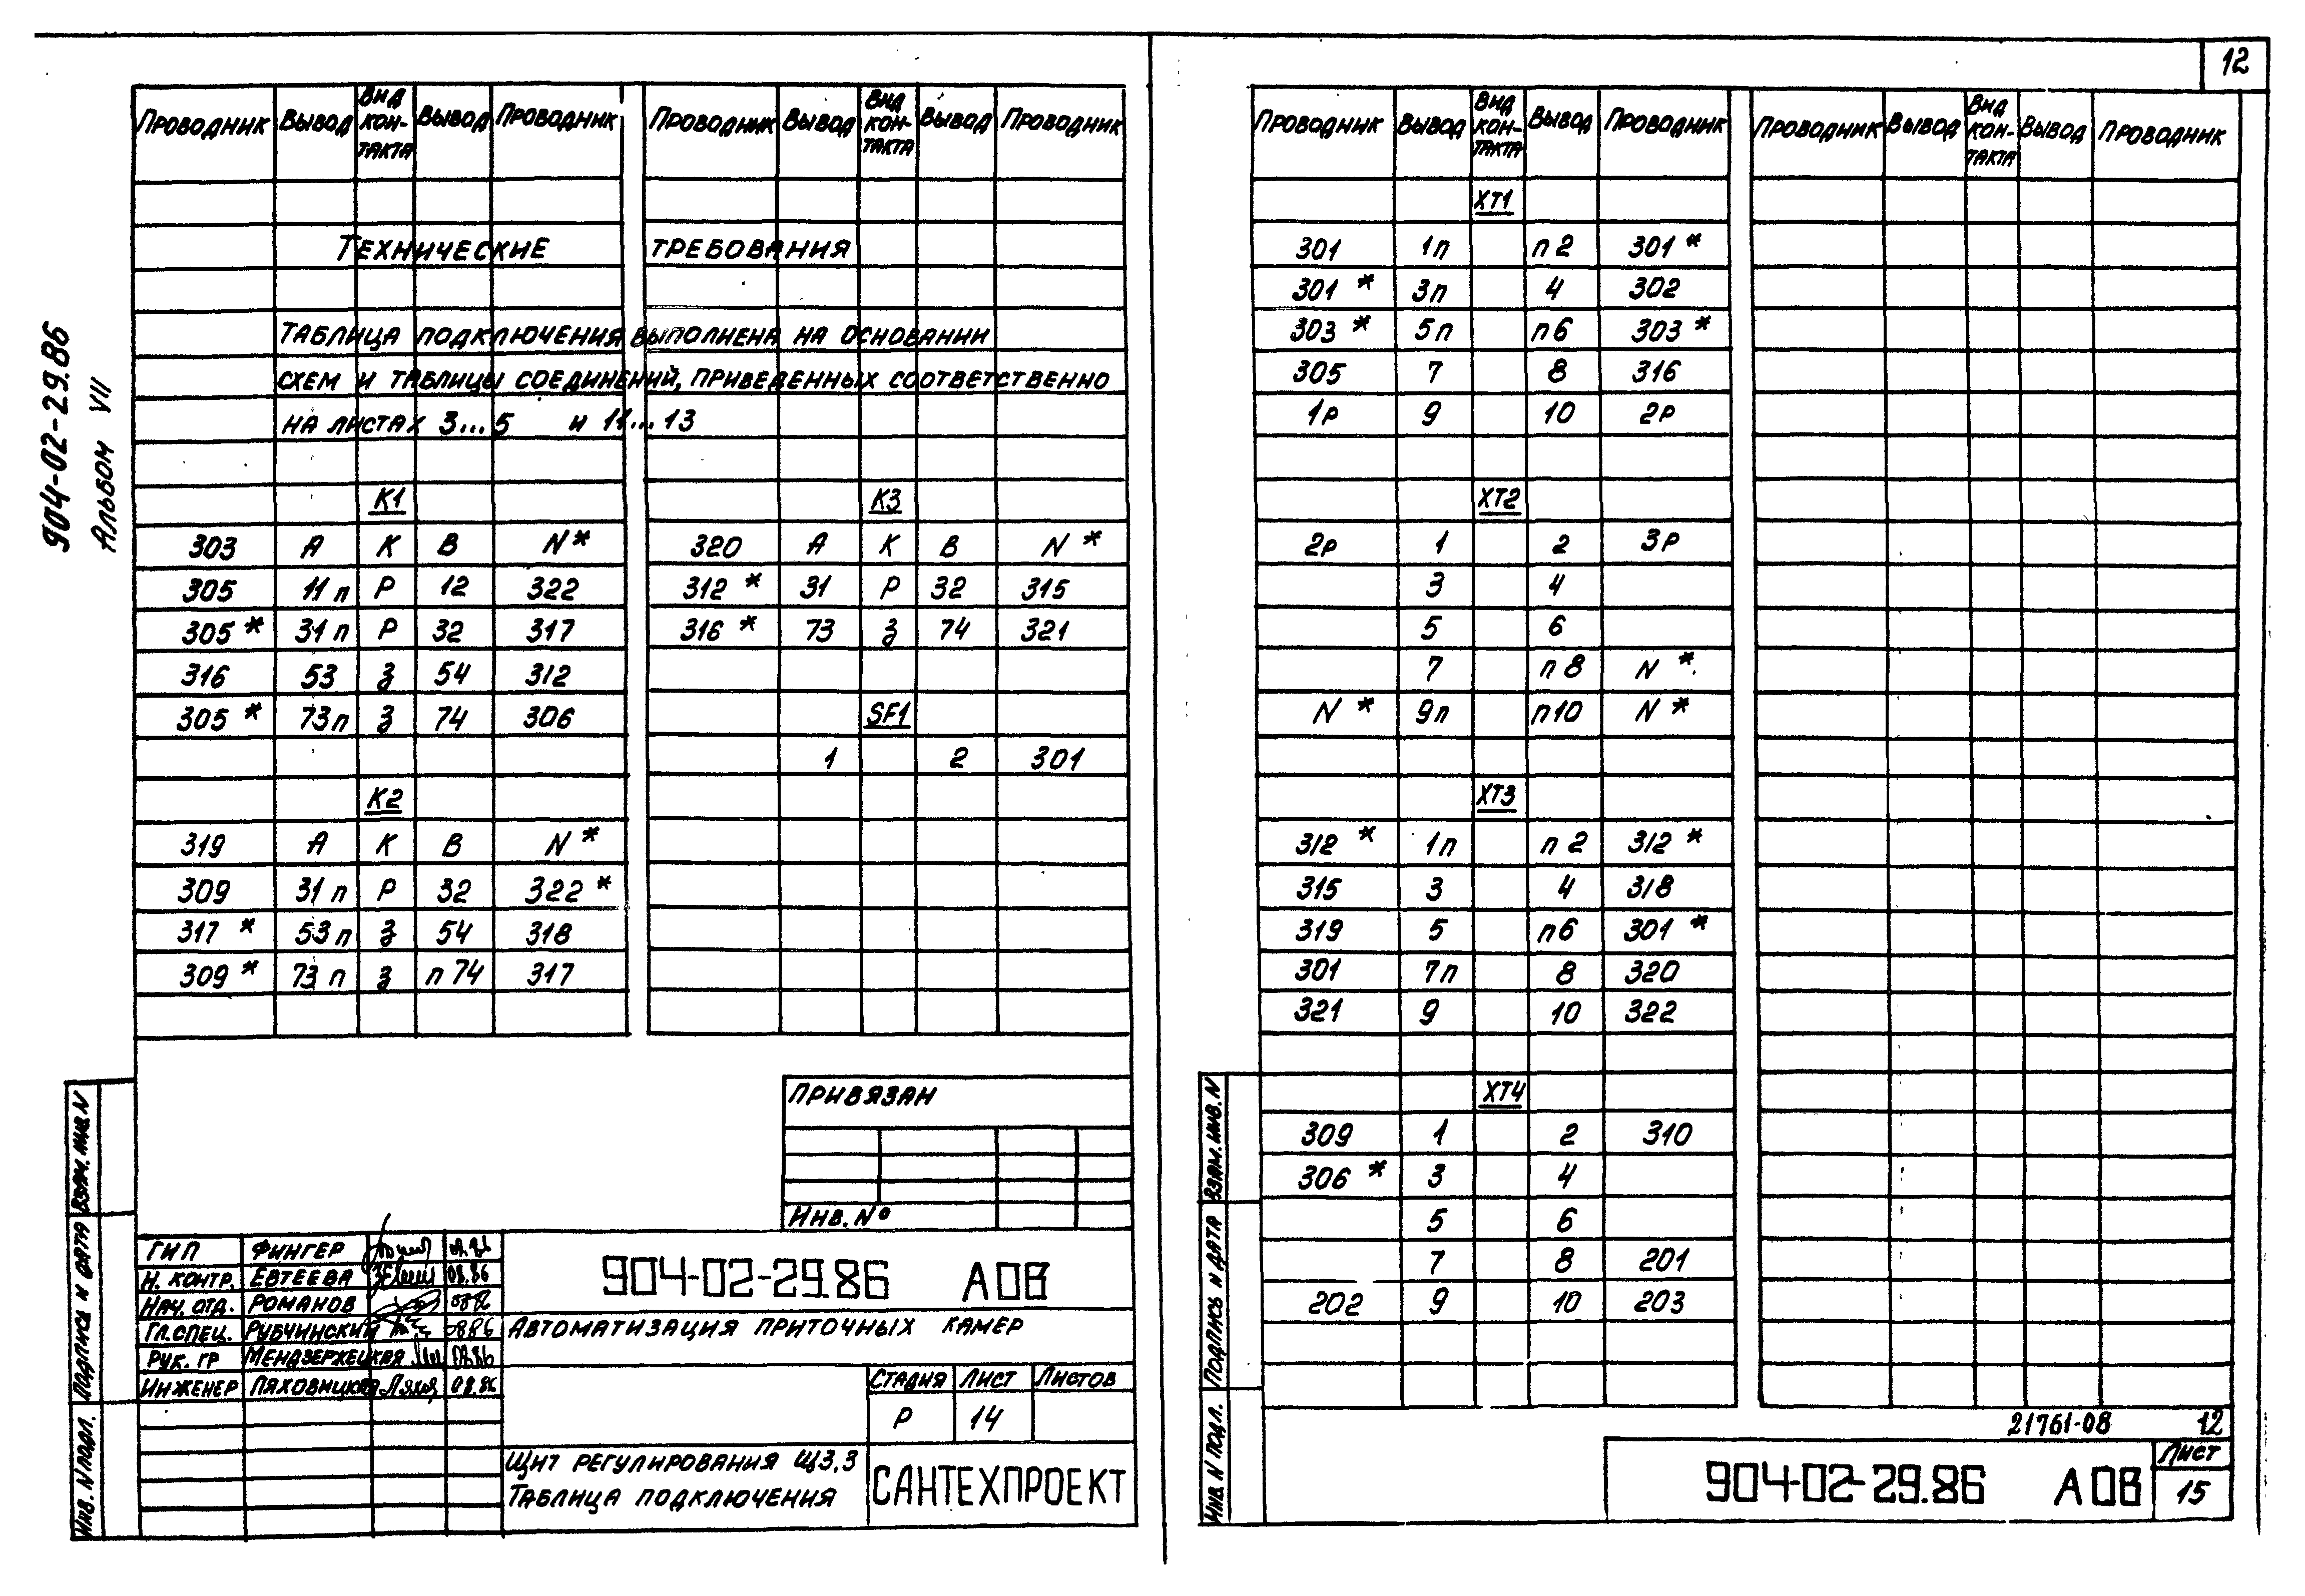 12
904-02-29.86
Альбом VII
Проводник Вывод Вид кон-такта Вывод Проводник Проводник Вывод Вид кон-такта Вывод Проводник
Технические требования
Таблица подключения выполнена на основании
схем и таблицы соединений, приведенных соответственно
на листах 3...5 и 11...13
К1 К3
303 А К В N* 320 А К В N*
305 11п Р 12 322 312* 31 Р 32 315
305* 31п Р 32 317 316* 73 З 74 321
316 53 З 54 312
305* 73п З 74 306 SF1
1 2 301
К2
319 А К В N*
309 31п Р 32 322*
317* 53п З 54 318
309* 73п З п74 317
Привязан
Инв. №
Взам. инв. N
Подпись и дата
Инв. N подл.
ГИП Фингер 08.86
Н. контр. Евтеева 08.86
Нач. отд. Романов 08.86
Гл. спец. Рубчинский 08.86
Рук. гр Мендзержецкая 08.86
Инженер Ляховицкая 08.86
904-02-29.86 АОВ
Автоматизация приточных камер
Стадия Лист Листов
Р 14
Щит регулирования Щ3.3
Таблица подключения
САНТЕХПРОЕКТ
Проводник Вывод Вид кон-такта Вывод Проводник Проводник Вывод Вид кон-такта Вывод Проводник
ХТ1
301 1п п2 301*
301* 3п 4 302
303* 5п п6 303*
305 7 8 316
1Р 9 10 2Р
ХТ2
2Р 1 2 3Р
3 4
5 6
7 п8 N*
N* 9п п10 N*
ХТ3
312* 1п п2 312*
315 3 4 318
319 5 п6 301*
301 7п 8 320
321 9 10 322
ХТ4
309 1 2 310
306* 3 4
5 6
7 8 201
202 9 10 203
Взам. инв. N
Подпись и дата
Инв. N подл.
21761-08 12
904-02-29.86 АОВ
Лист
15